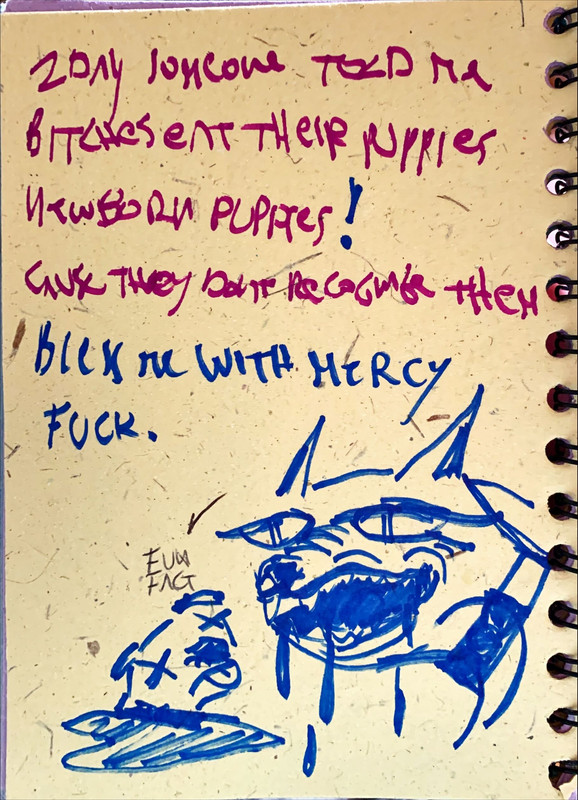 2DAY SOMEONE TOLD ME
BITCHES EAT THEIR PUPPIES
NEWBORN PUPPIES!
CAUSE THEY DONT RECOGNIZE THEM
BLESS ME WITH MERCY
FUCK.
FUN
FACT